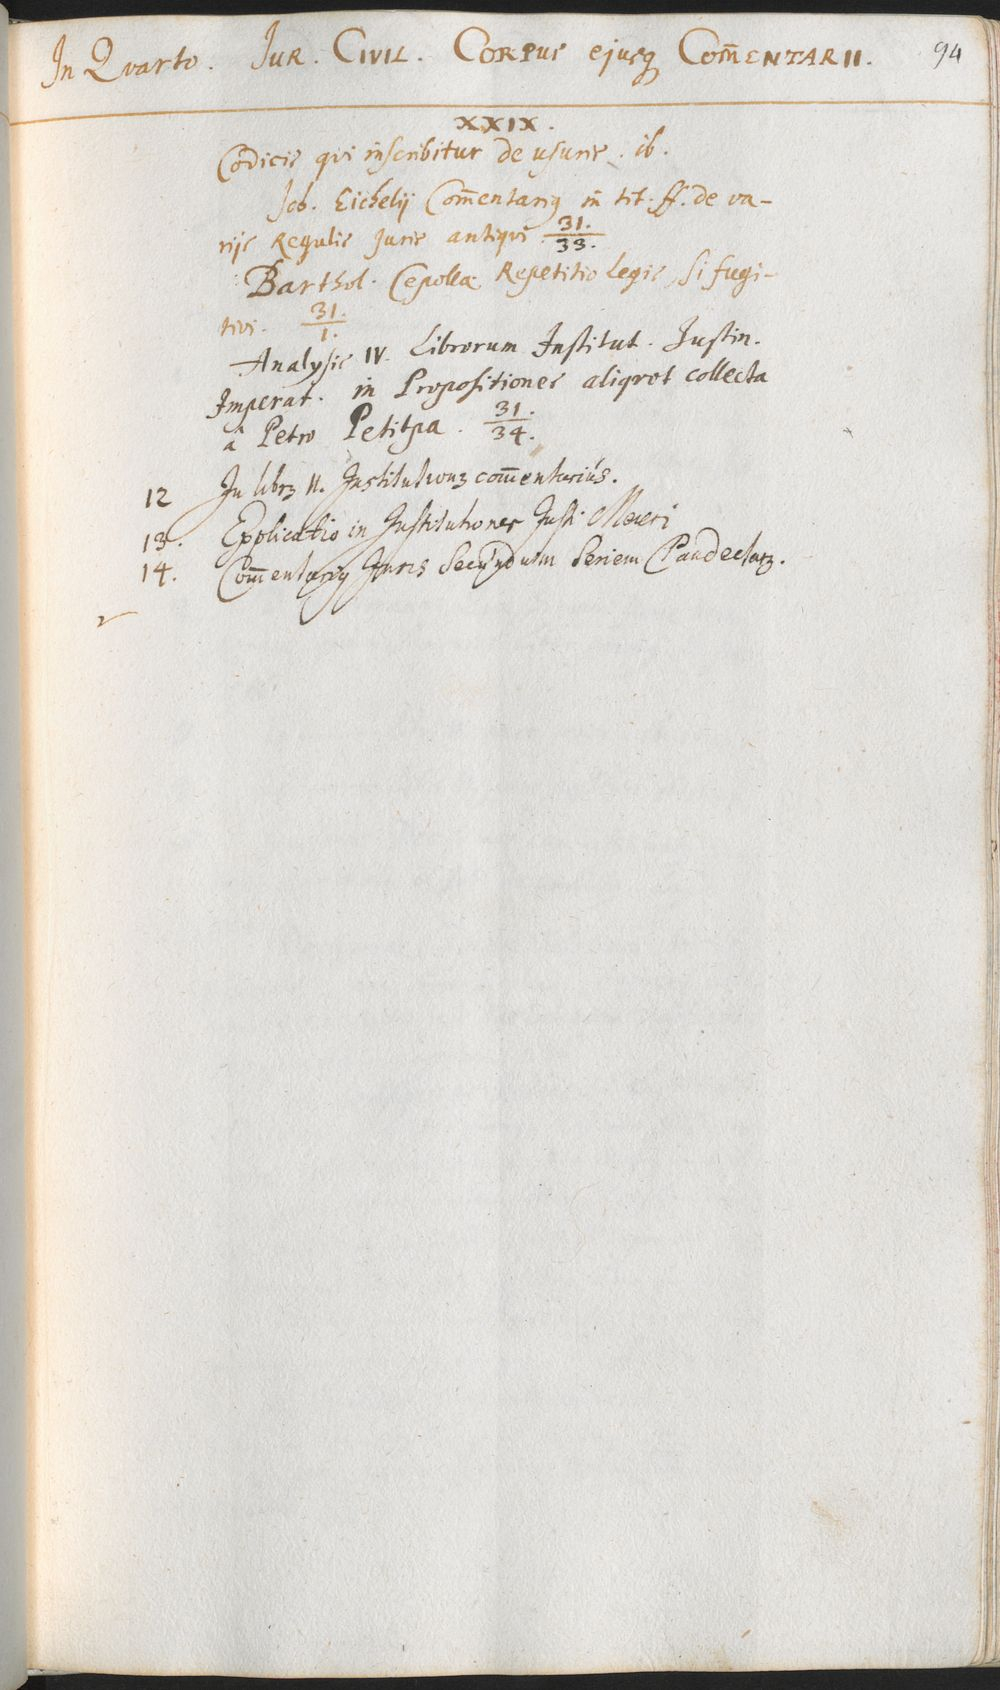 In Qvarto. Jur. Civil. Corpus ejusq Com̄entarii. 94
XXIX.
Codicis qvi inscribitur de usuris. ib.
Joh. Eichelij Com̄entarig in tit. ff. de va-
rijs Regulis Juris antiqvi 31./33.
Barthol. Cepollæ Repetitio Legis, Si fugi-
tivi. 31./1.
Analysis IV. Librorum Institut. Justin.
Imperat. in Propositiones aliqvot collecta
â Petro Petitpa. 31./34.
12 In librz II. Institutionz com̄entarius.
13. Explicatio in Institutiones Justi Meieri
14. Com̄entarig Juris Secundum Seriem Pandectarz.